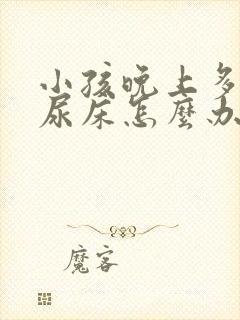 小孩晚上多
尿床怎麼办
魔客